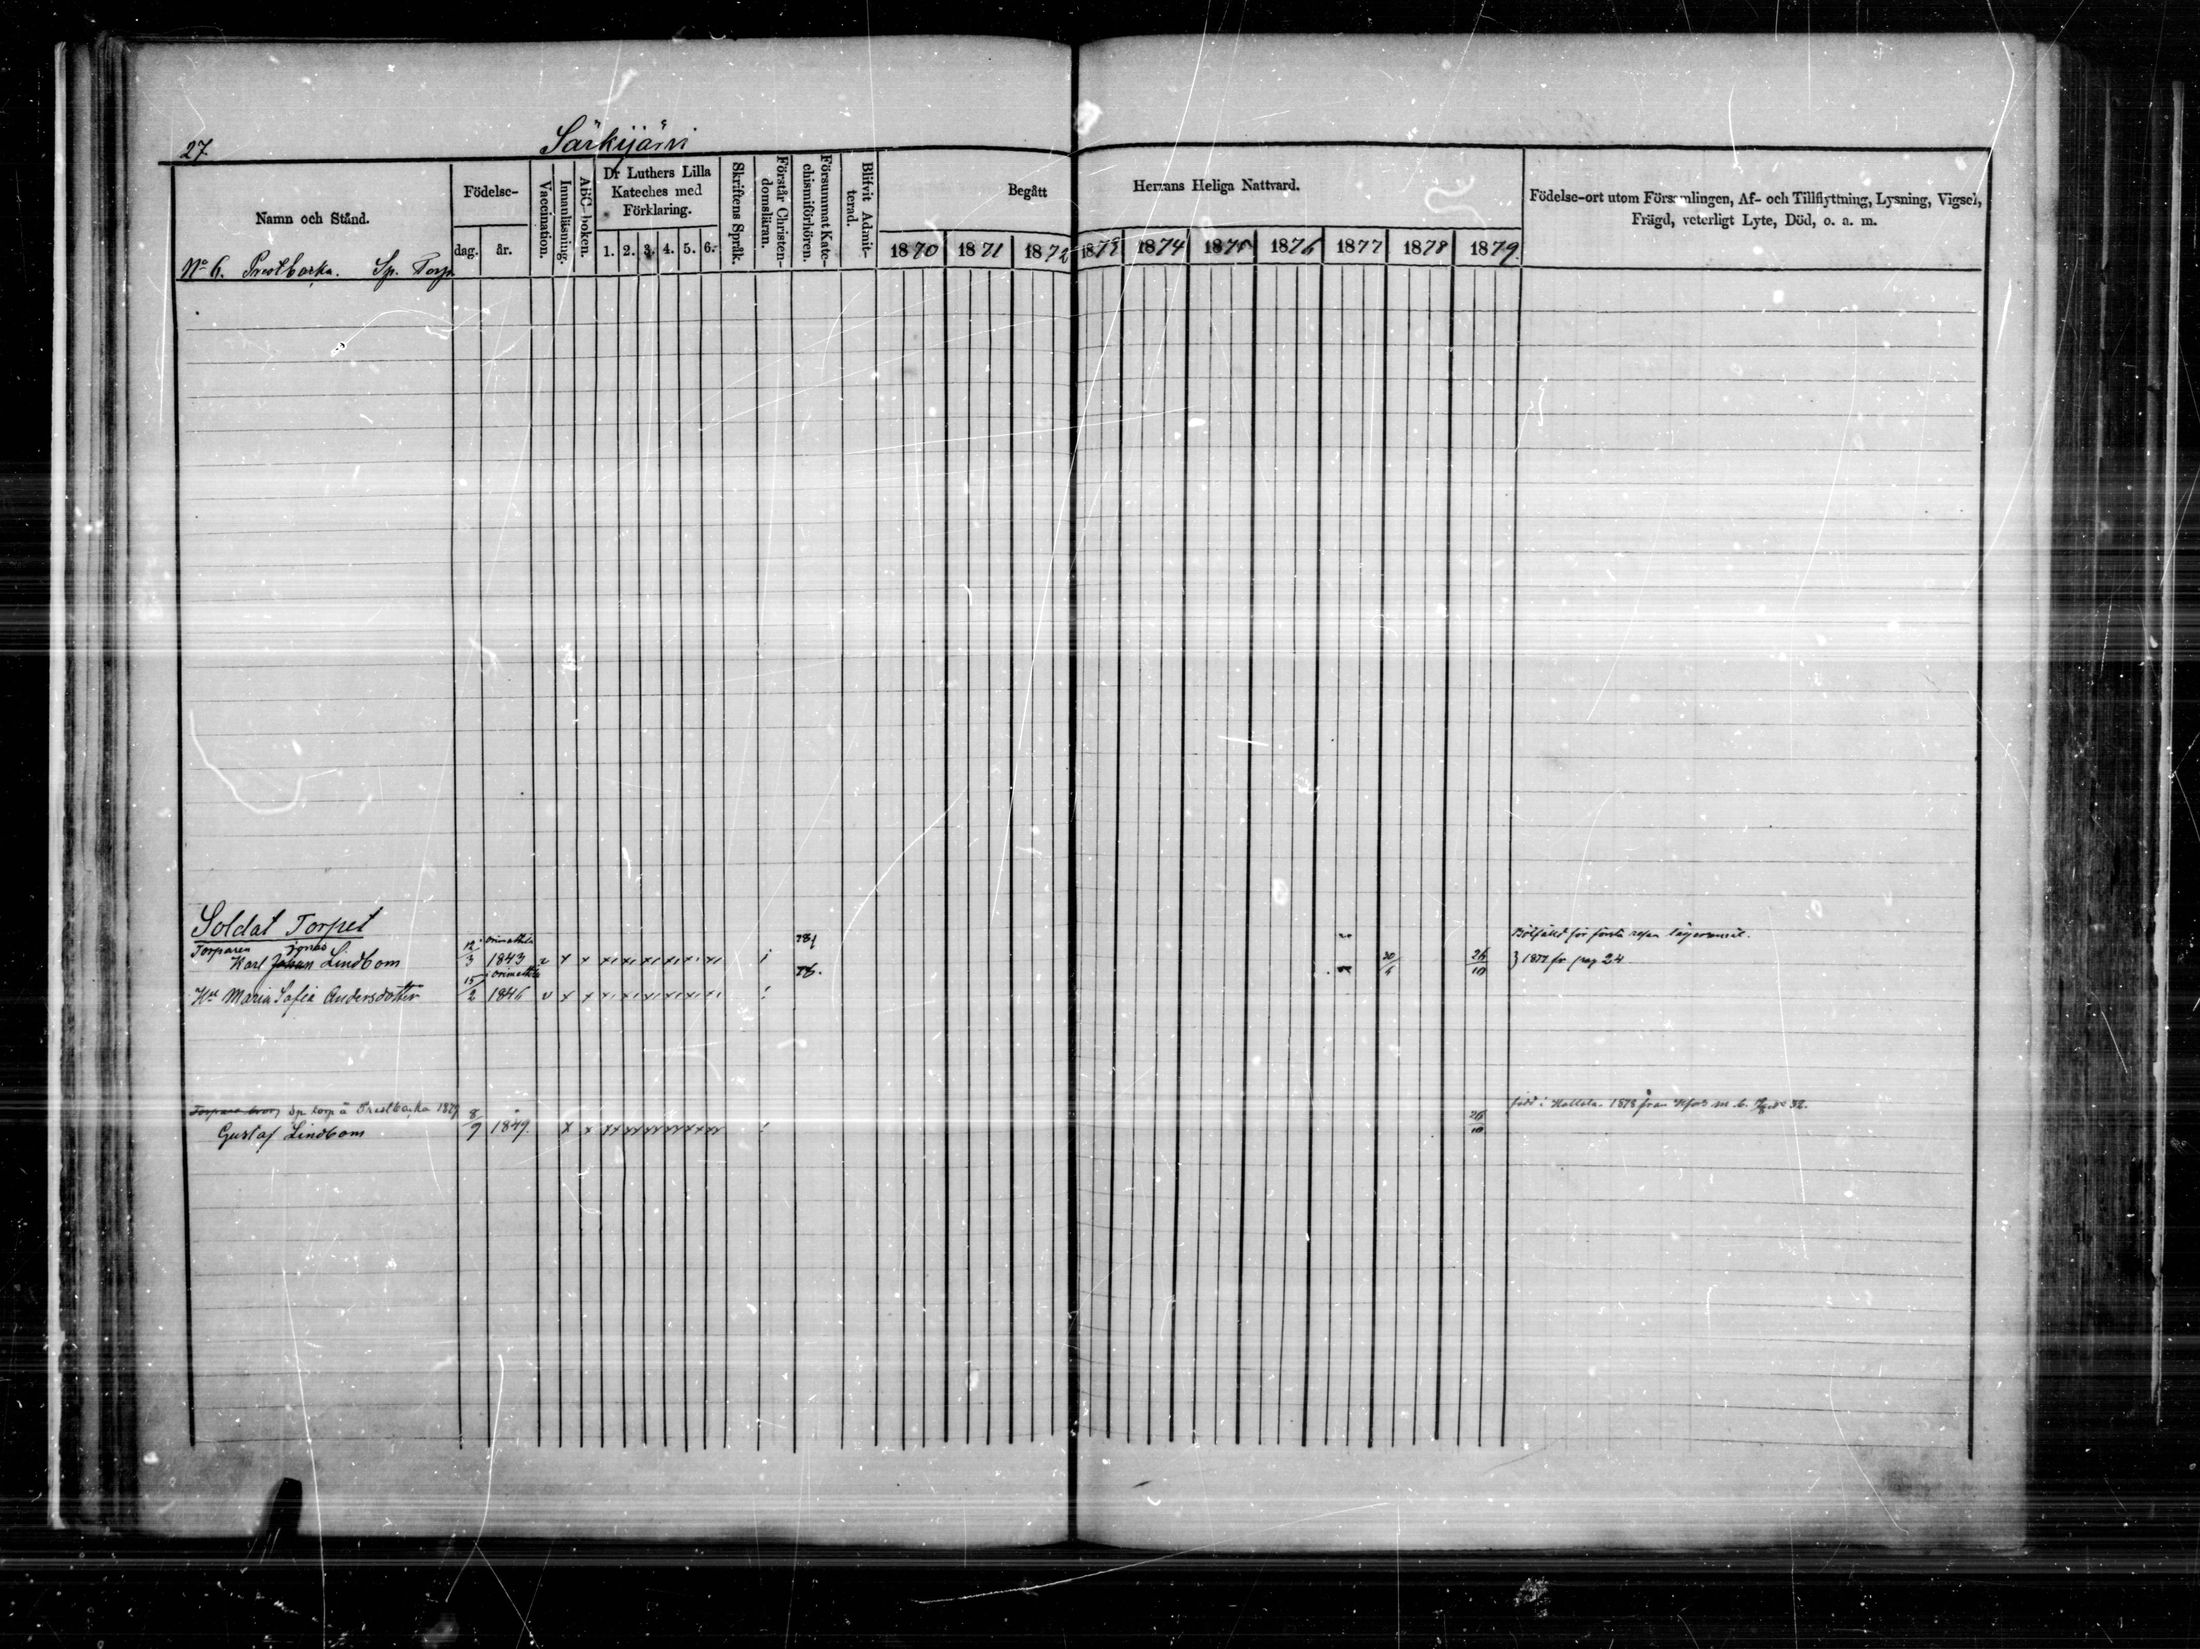 27.
Särkijärvi
Namn och Stånd.
Födelse-
dag.
år.
Vaccination.
Innanläsning.
ABC-boken.
Dr Luthers Lilla
Kateches med
Förklaring.
1. 2. 3. 4. 5. 6.
Skriftens Språk.
Förstår Christen-
domsläran.
Försummat Kate-
chismiförhören.
Blifvit Admit-
terad.
Begått
Herrans Heliga Nattvard.
1870 1871 1872 1873 1874 1875 1876 1877 1878 1879
Födelse-ort utom Församlingen, Af- och Tillflyttning, Lysning, Vigsel,
Frägd, veterligt Lyte, Död, o. a. m.
No 6. Prestbacka. Sp. Torp.
Soldat Torpet
Torparen jonas
Karl Johan Lindbom 12/3 1843 v x x i 20/6 26/10 1877 fr pag 24
Hu Maria Sofia Andersdotter 15/2 1846 v x x
Sp torp å Prestbacka 1879 född i Hollola. 1878 från
Gustaf Lindbom 8/9 1849. x x 26/10